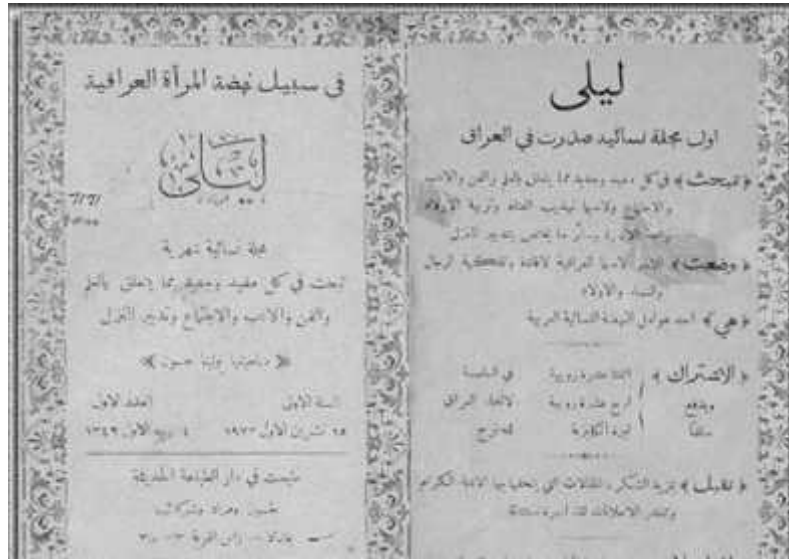 ليلى
اول مجلة نسائية صدرت في العراق
﴿ تبحث ﴾ في كل مفيد وجديد مما يتعلق بالعلم والفن والادب
والاجتماع ولاسيما تهذيب الفتاة وتربية الاولاد
وسائر ما يختص بتدبير المنزل
﴿ وضعت ﴾ لاسيما العراقية لافادة وتفكهة الرجال
والنساء والاولاد
﴿ هي ﴾ احد عوامل النهضة النسائية العربية
﴿ الاشتراك ﴾ اثنتا عشرة روبية في العاصمة
ويدفع اربع عشرة روبية لانحاء العراق
سلفاً ليرة انكليزية للخارج
﴿ تقبل ﴾ بمزيد الشكر المقالات التي
وتنشر الاعلانات لقاء اجرة
في سبيل نهضة المرأة العراقية
ليلى
مجلة نسائية شهرية
تبحث في كل مفيد وجديد مما يتعلق بالعلم
والفن والادب والاجتماع وتدبير المنزل
حسون
السنة الاولى العدد الاول
١٥ تشرين الاول ١٩٢٣ ٤ ربيع الاول ١٣٤٢
طبعت في دار الطباعة الحديثة